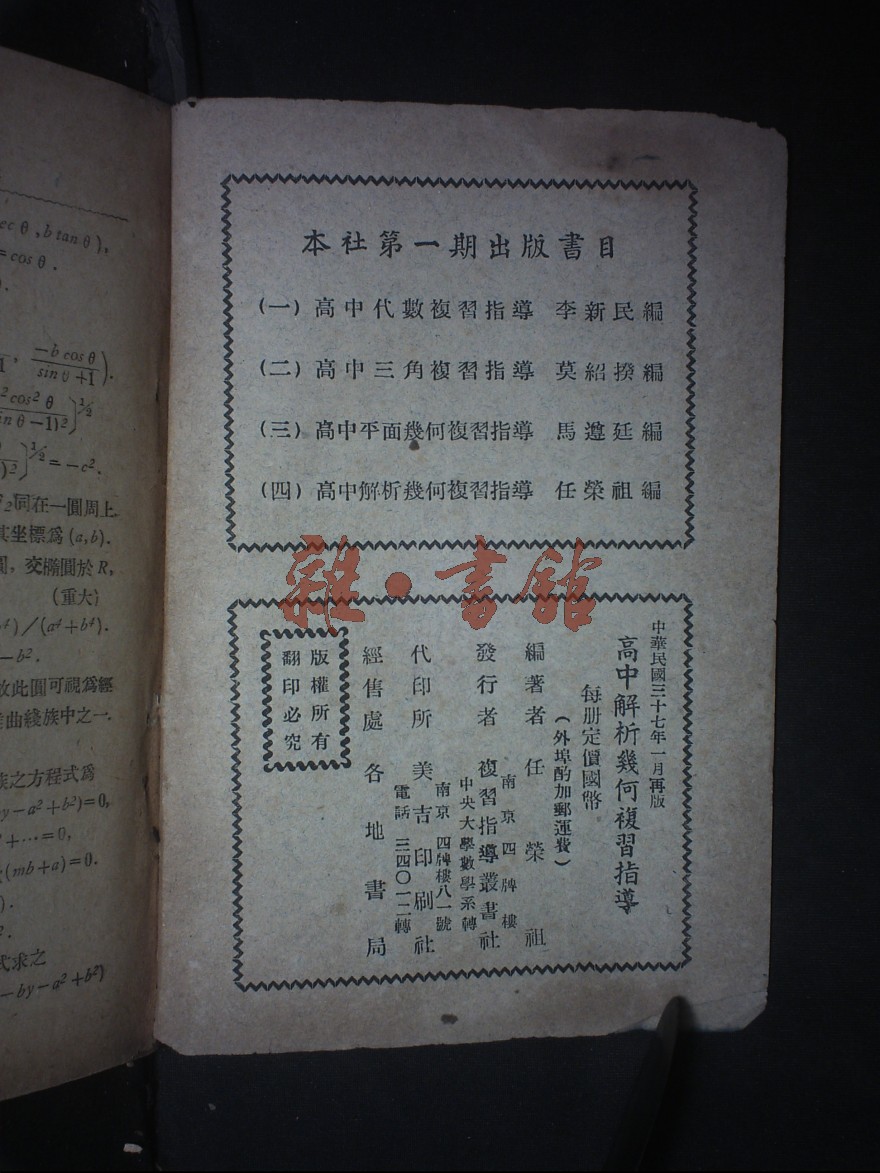 ec θ , b tan θ ),
= cos θ .
).
1 , −b cos θ / sin θ +1 ).
² cos² θ / in θ −1)² }^3/2
)² }^3/2 = −c².
₂同在一圓周上.
其坐標爲 (a,b).
圓, 交橢圓於 R,
(重大)
⁴) / (a⁴+b⁴).
−b².
故此圓可視爲經
曲綫族中之一.
族之方程式爲
by−a²+b²)=0,
²+⋯=0,
(mb+a)=0.
).
².
式求之
−by−a²+b²)
本社第一期出版書目
(一) 高中代數複習指導 李新民編
(二) 高中三角複習指導 莫紹揆編
(三) 高中平面幾何複習指導 馬遵廷編
(四) 高中解析幾何複習指導 任榮祖編
雜·書館
中華民國三十七年一月再版
高中解析幾何複習指導
每册定價國幣
(外埠酌加郵運費)
編著者 任榮祖
南京四牌樓
發行者 複習指導叢書社
中央大學數學系轉
南京四牌樓八一號
代印所 美吉印刷社
電話 三四〇一二轉
經售處 各地書局
版權所有
翻印必究